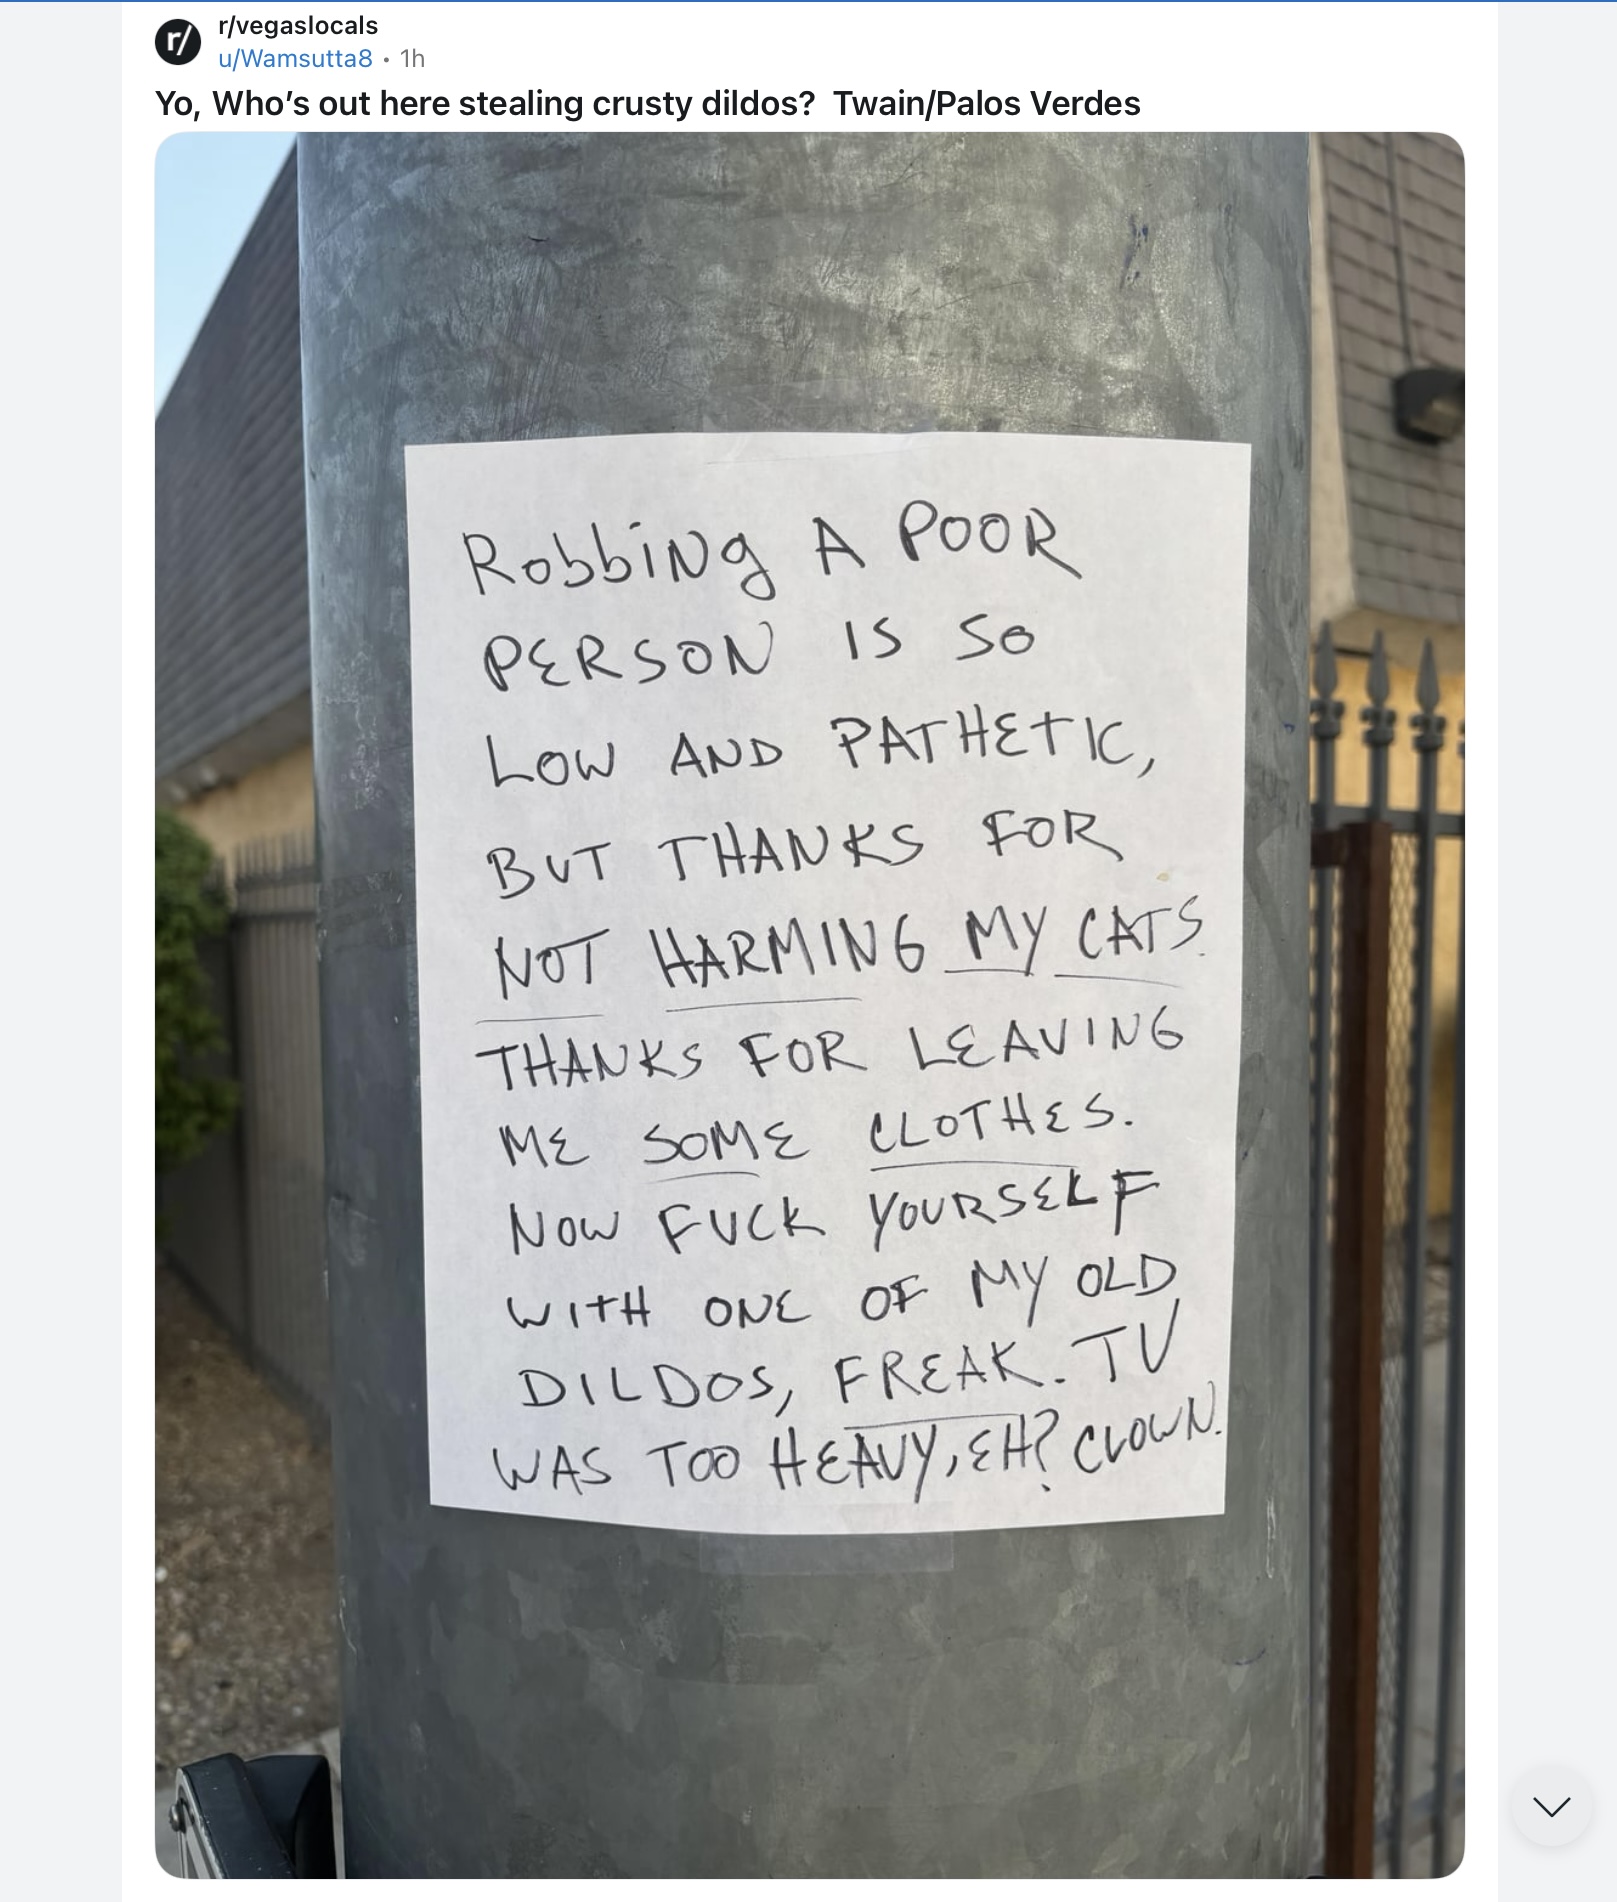 r/
r/vegaslocals
u/Wamsutta8 • 1h
Yo, Who's out here stealing crusty dildos? Twain/Palos Verdes
RobbiNg A POOR
PERSON IS SO
LOW AND PATHETIC,
BUT THANKS FOR
NOT HARMING MY CATS.
THANKS FOR LEAVING
ME SOME CLOTHES.
NOW FUCK YOURSELF
WITH ONE OF MY OLD
DILDOS, FREAK. TV
WAS TOO HEAVY, EH? CLOWN.